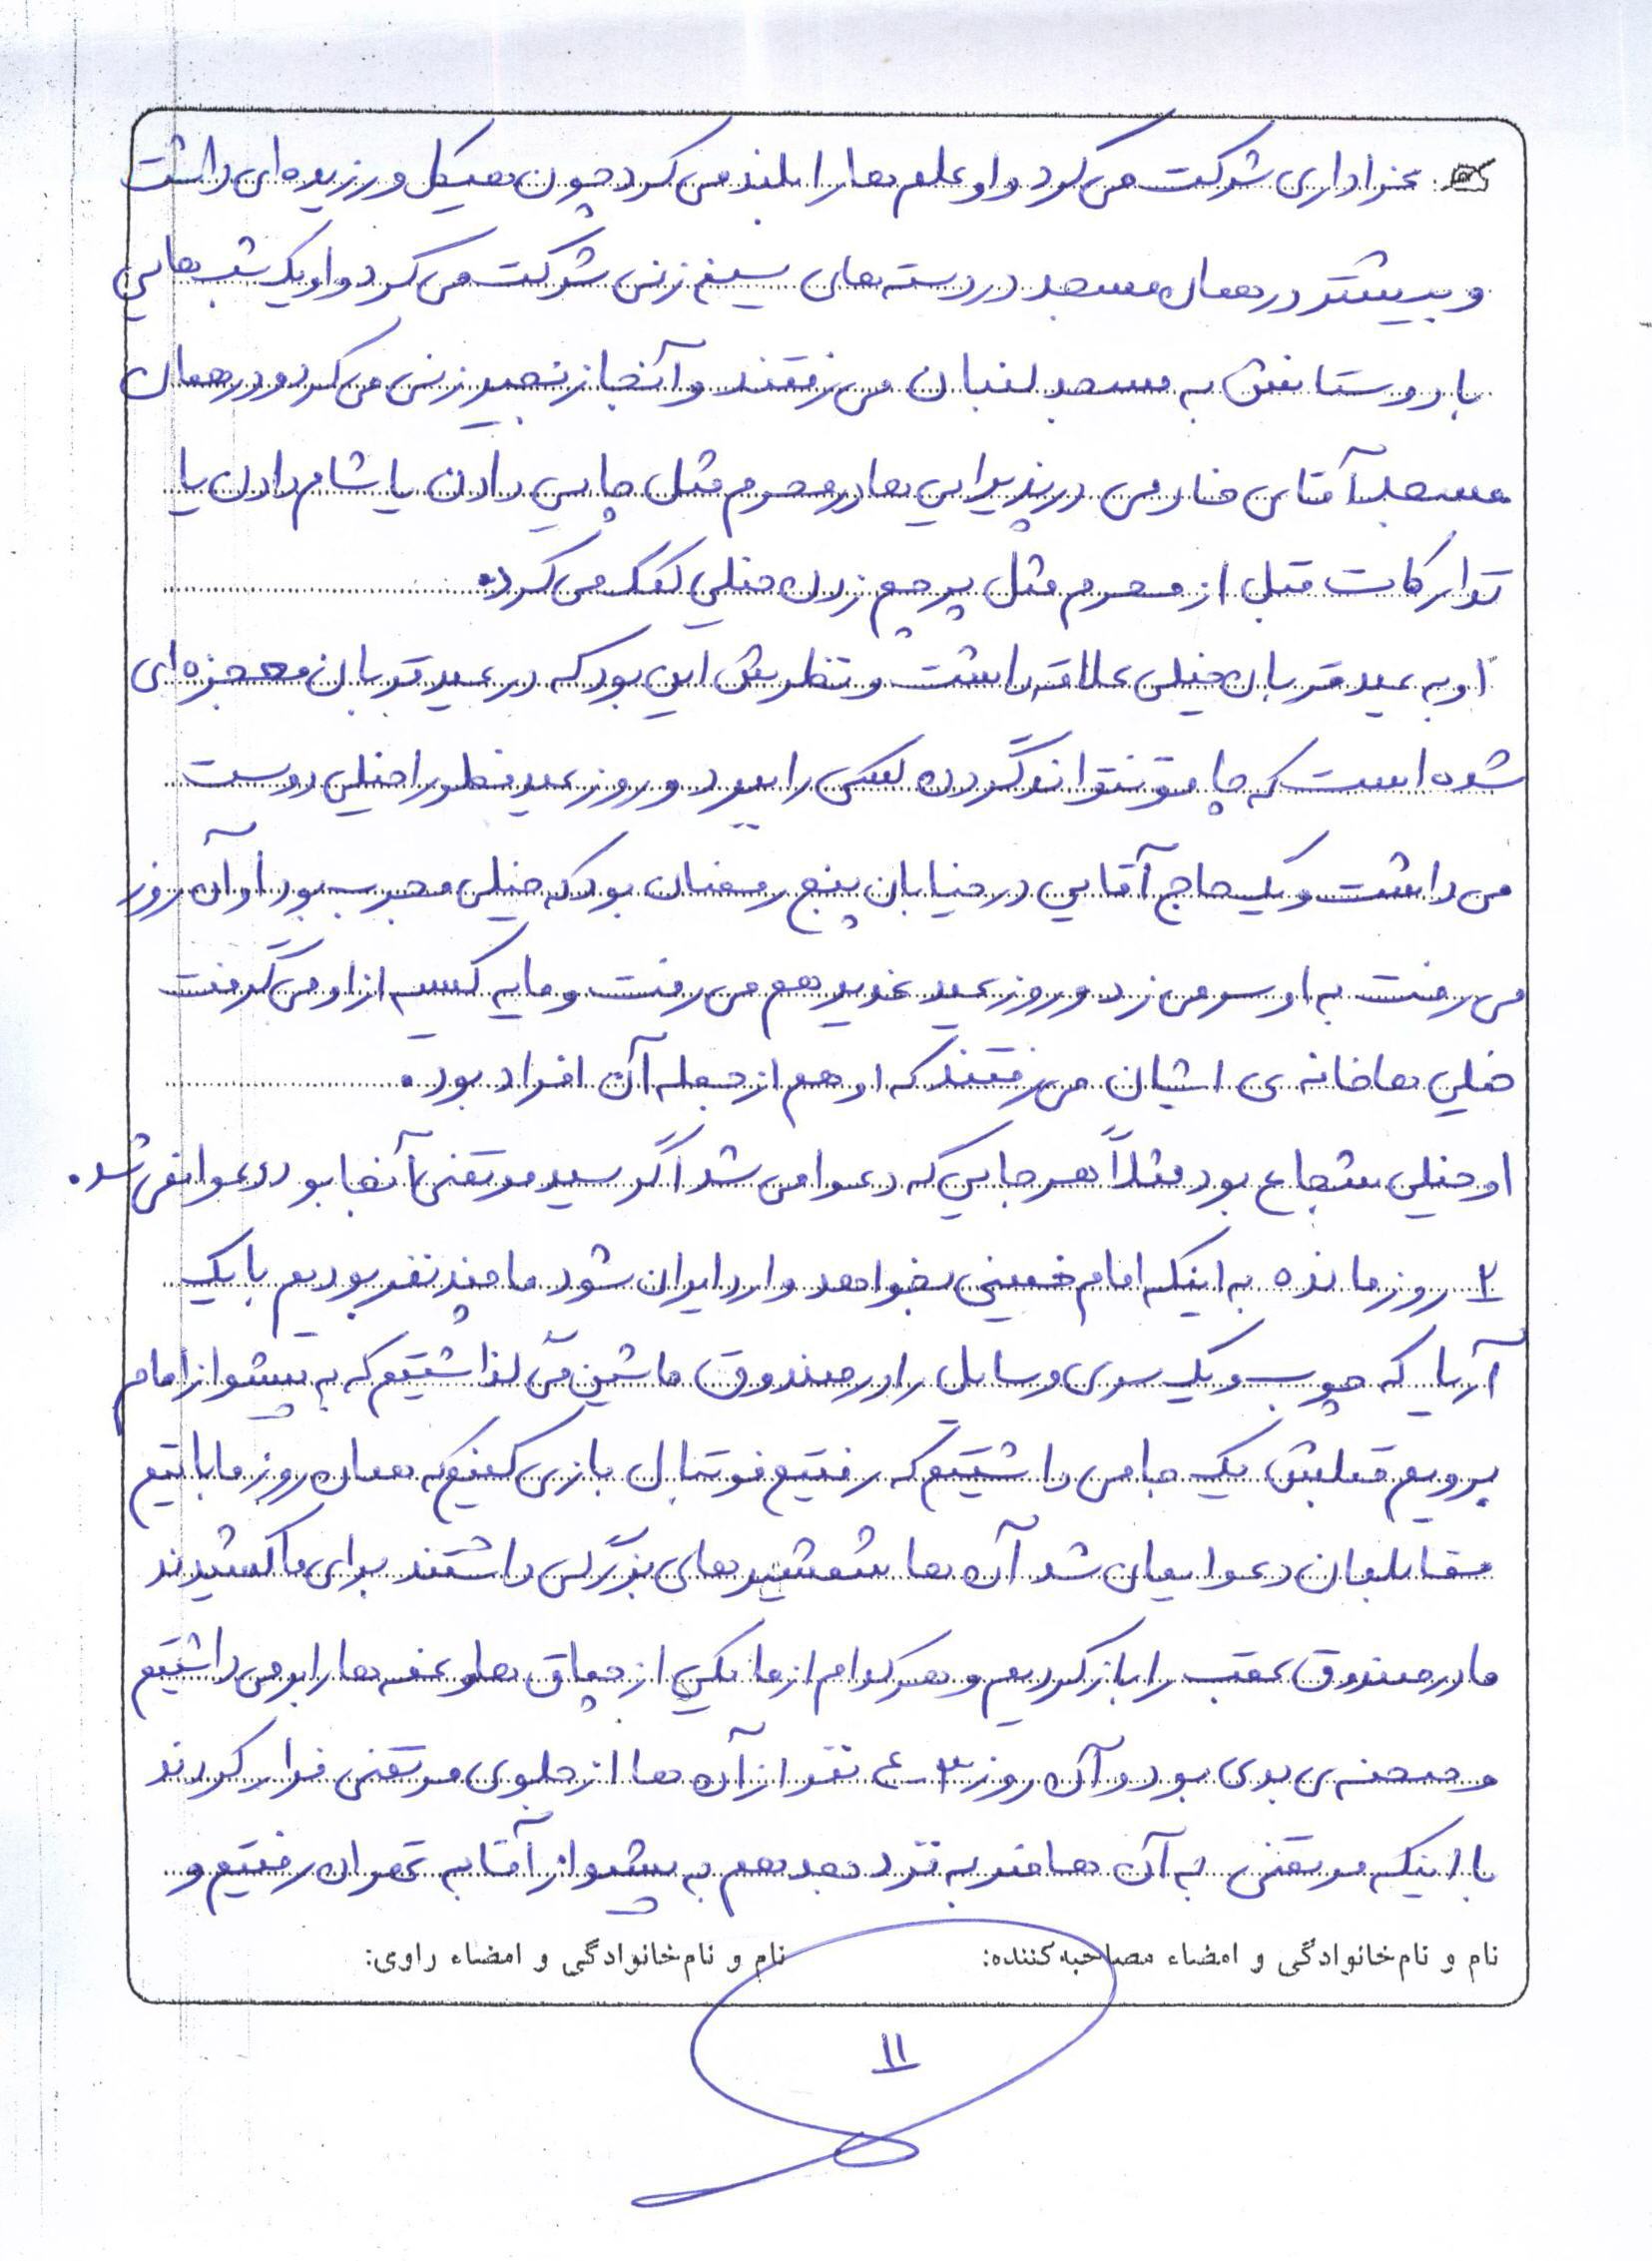 عزاداری شرکت می کرد و او علم ها را بلند می کرد چون هیکل ورزیده ای داشت
و بیشتر در همان مسجد در دسته های سینه زنی شرکت می کرد و او یک شب هایی
با دوستانش به مسجد لنبان می رفتند و آنجا زنجیر زنی می کرد و در همان
مسجد آقای خادمی در پذیرایی ها در محرم مثل چایی دادن یا شام دادن یا
تدارکات قبل از محرم مثل پرچم زدن خیلی کمک می کرد.
او به عید قربان خیلی علاقه داشت و نظرش این بود که در عید قربان معجزه ای
شده است که چاقو نتواند گردن کسی را ببرد و روز عید فطر را خیلی دوست
می داشت و یک حاج آقایی در خیابان پنج رمضان بود که خیلی مجرب بود او آن روز
می رفت به او سر می زد و روز عید غدیر هم می رفت و مایه کسیه از او می گرفت
خیلی ها خانه ی ایشان می رفتند که او هم از جمله آن افراد بود.
او خیلی شجاع بود مثلاً هر جایی که دعوا می شد اگر سید مرتضی آنجا بود دعوا نمی شد.
۲ روز مانده به اینکه امام خمینی بخواهد وارد ایران شود ما چند نفر بودیم با یک
آریا که چوب و یک سری وسایل را در صندوق ماشین می گذاشتیم که به پیشواز امام
برویم قبلش یک جامی داشتیم که رفتیم فوتبال بازی کنیم که همان روز ما با تیم
مقابلمان دعوایمان شد آن ها شمشیرهای بزرگی داشتند برای ما کشیدند
ما در صندوق عقب را باز کردیم و هر کدام از ما یکی از چماق ها و غمه ها را بر می داشتیم
و صحنه ی بدی بود و آن روز ۳-۴ نفر از آن ها از جلوی مرتضی فرار کردند
با اینکه مرتضی به آن ها ضربه نزد بعد هم به پیشواز آقا به تهران رفتیم و
نام و نام خانوادگی و امضاء مصاحبه کننده: نام و نام خانوادگی و امضاء راوی:
۱۱